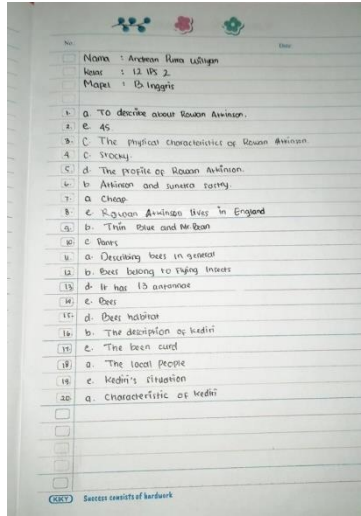 No.
Date:
Nama : Andrean Putra Wiliyan
Kelas : 12 IPS 2
Mapel : B. Inggris
1. a. To describe about Rowan Atkinson.
2. e. 45.
3. C. The phytical characteristics of Rowan Atkinson.
4. C. Stocky.
5. d. The profile of Rowan Atkinson.
6. b Atkinson and Sunetra Sastry.
7. a Cheap.
8. e Rowan Atkinson lives in England
9. b. Thin Blue and Mr. Bean
10. c. Pants
11. a. Describing bees in general
12. b. Bees belong to Flying Insects
13. d. It has 13 antannae
14. e. Bees
15. d. Bees habitat
16. b. The description of kediri
17. e. The been curd
18. a. The local people
19. e. Kediri's situation
20. a. Characteristic of kediri
KKY Success consists of hardwork